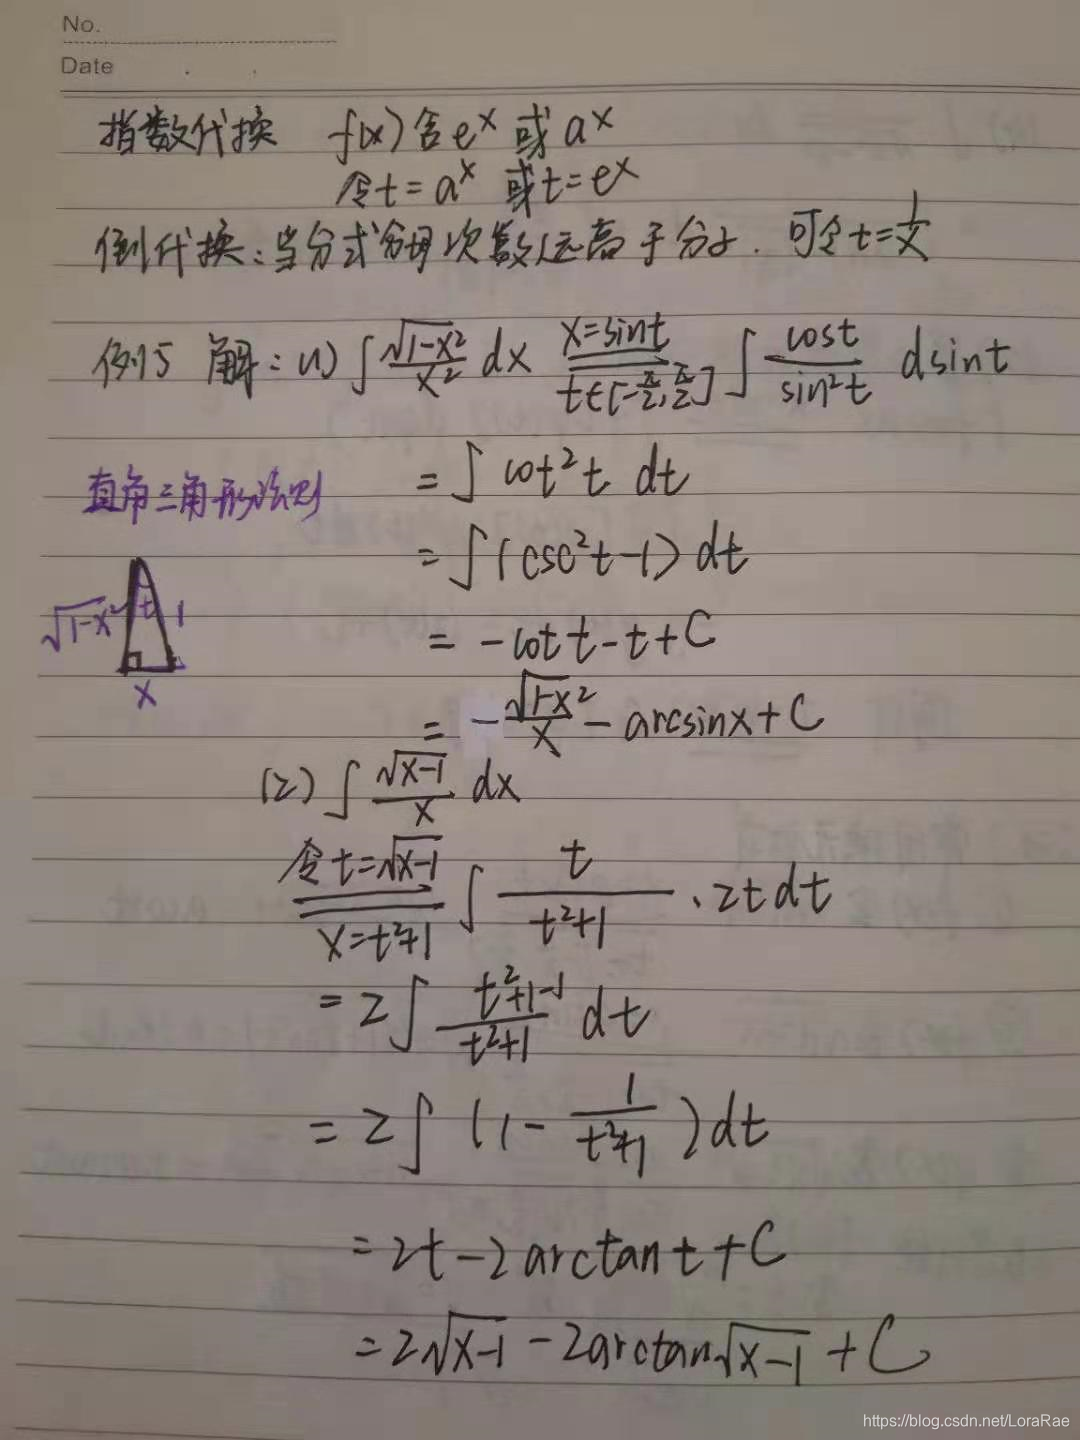 No.
Date
指数代换 f(x)含eˣ 或 aˣ
令t=aˣ 或t=eˣ
倒代换:当分式分母次数远高于分子.可令t=1/x
例5 解:(1) ∫ √(1-x²)/x² dx x=sint t∈[-π/2,π/2] ∫ cost/sin²t dsint
= ∫ cot²t dt
直角三角形法则
= ∫(csc²t-1) dt
√(1-x²) t 1
x
= -cot t-t+C
= -√(1-x²)/x - arcsinx+C
(2) ∫ √(x-1)/x dx
令t=√(x-1) x=t²+1 ∫ t/(t²+1) · 2t dt
=2∫ (t²+1-1)/(t²+1) dt
=2∫ (1- 1/(t²+1))dt
=2t-2arctan t+C
=2√(x-1) -2arctan√(x-1) +C
https://blog.csdn.net/LoraRae